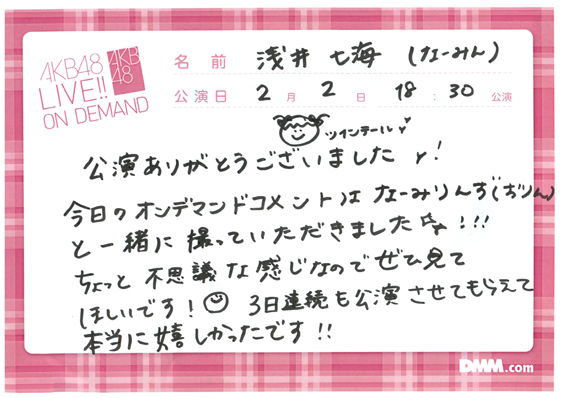 AKB48
LIVE!!
ON DEMAND
AKB
48
名前 浅井 七海 (なーみん)
公演日 2月 2日 18:30 公演
ツインテール
公演ありがとうございました!
今日のオンデマンドコメントは なーみりんず(おりん)
と一緒に撮っていただきました☆!!!
ちょっと不思議な感じなのでぜひ見て
ほしいです! 3日連続も公演させてもらえて
本当に嬉しかったです!!
DMM.com